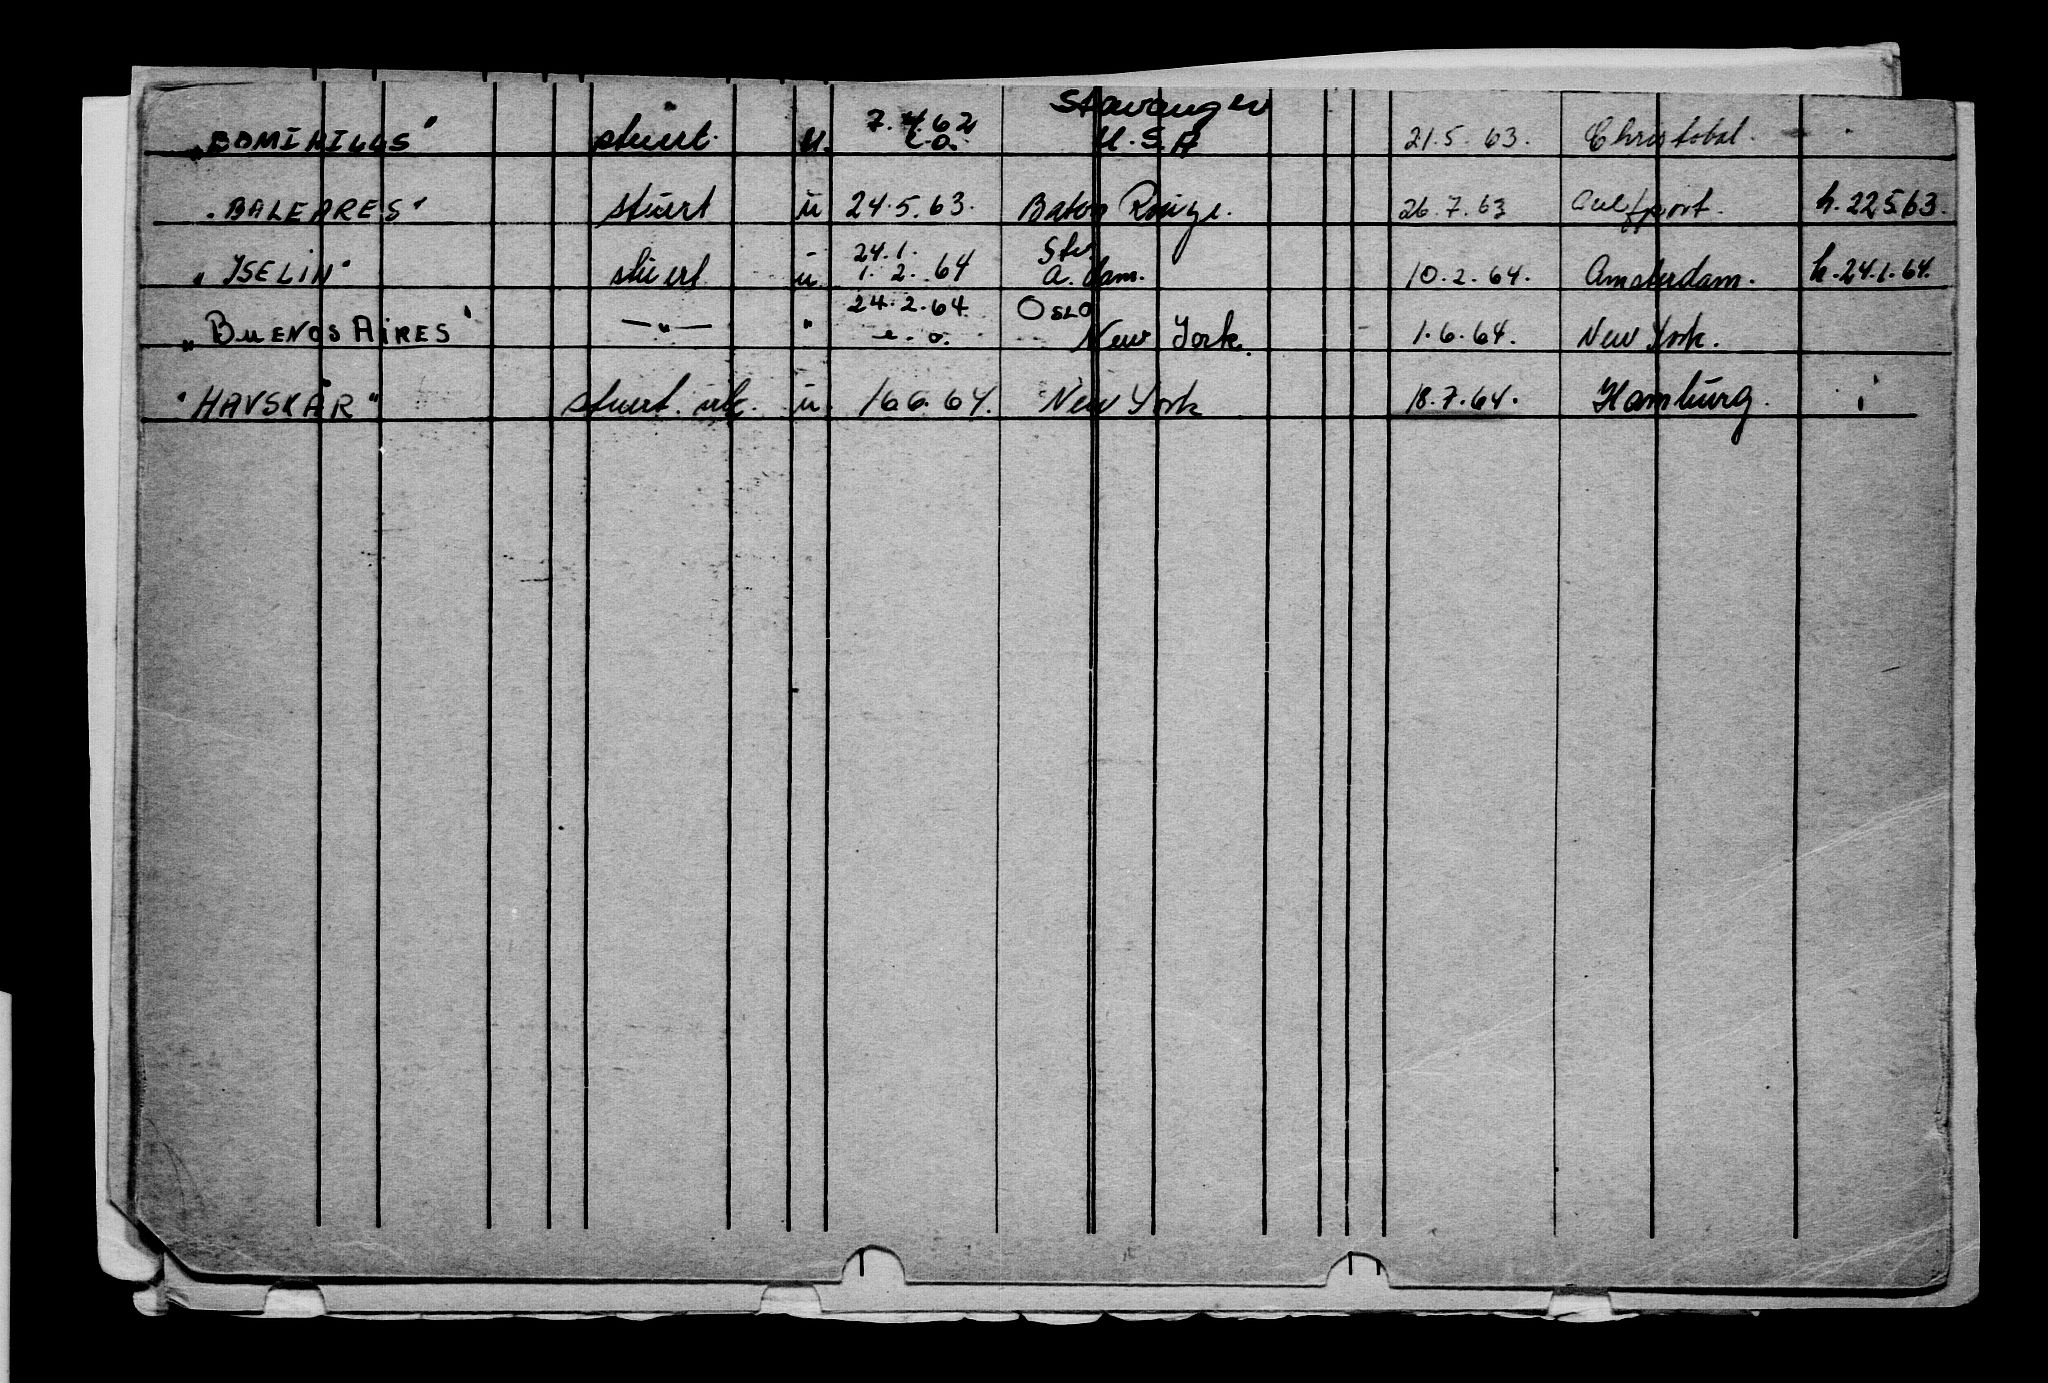 Stavanger
„DOMINILLS" stuert. u. 7.4.62 e.o. U.S.A 21.5.63. Christobal.
„BALEARES" stuert u 24.5.63. Baton Rouge. 26.7.63 Gulfport. h.22.5.63.
24.1. Stv.
„ISELIN" stuert u 1.2.64 A.dam. 10.2.64. Amsterdam. h.24.1.64.
24.2.64. OSLO
„BUENOS AIRES" —„— " e.o. New York. 1.6.64. New York.
"HAVSKÅR" stuert. u 16.6.64. New York 18.7.64. Hamburg.